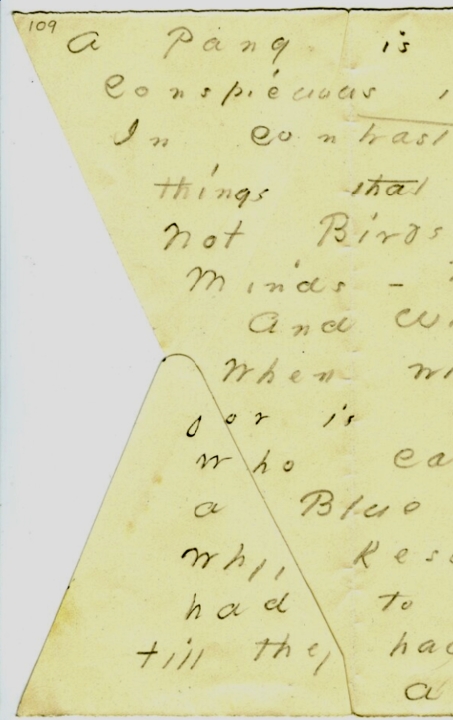 109
A Pang is
Conspicuous i
In contrast
things that
not Birds
Minds -
And Wi
When wh
for is
Who ca
a Blue
Why, Res
had to
till they had
a